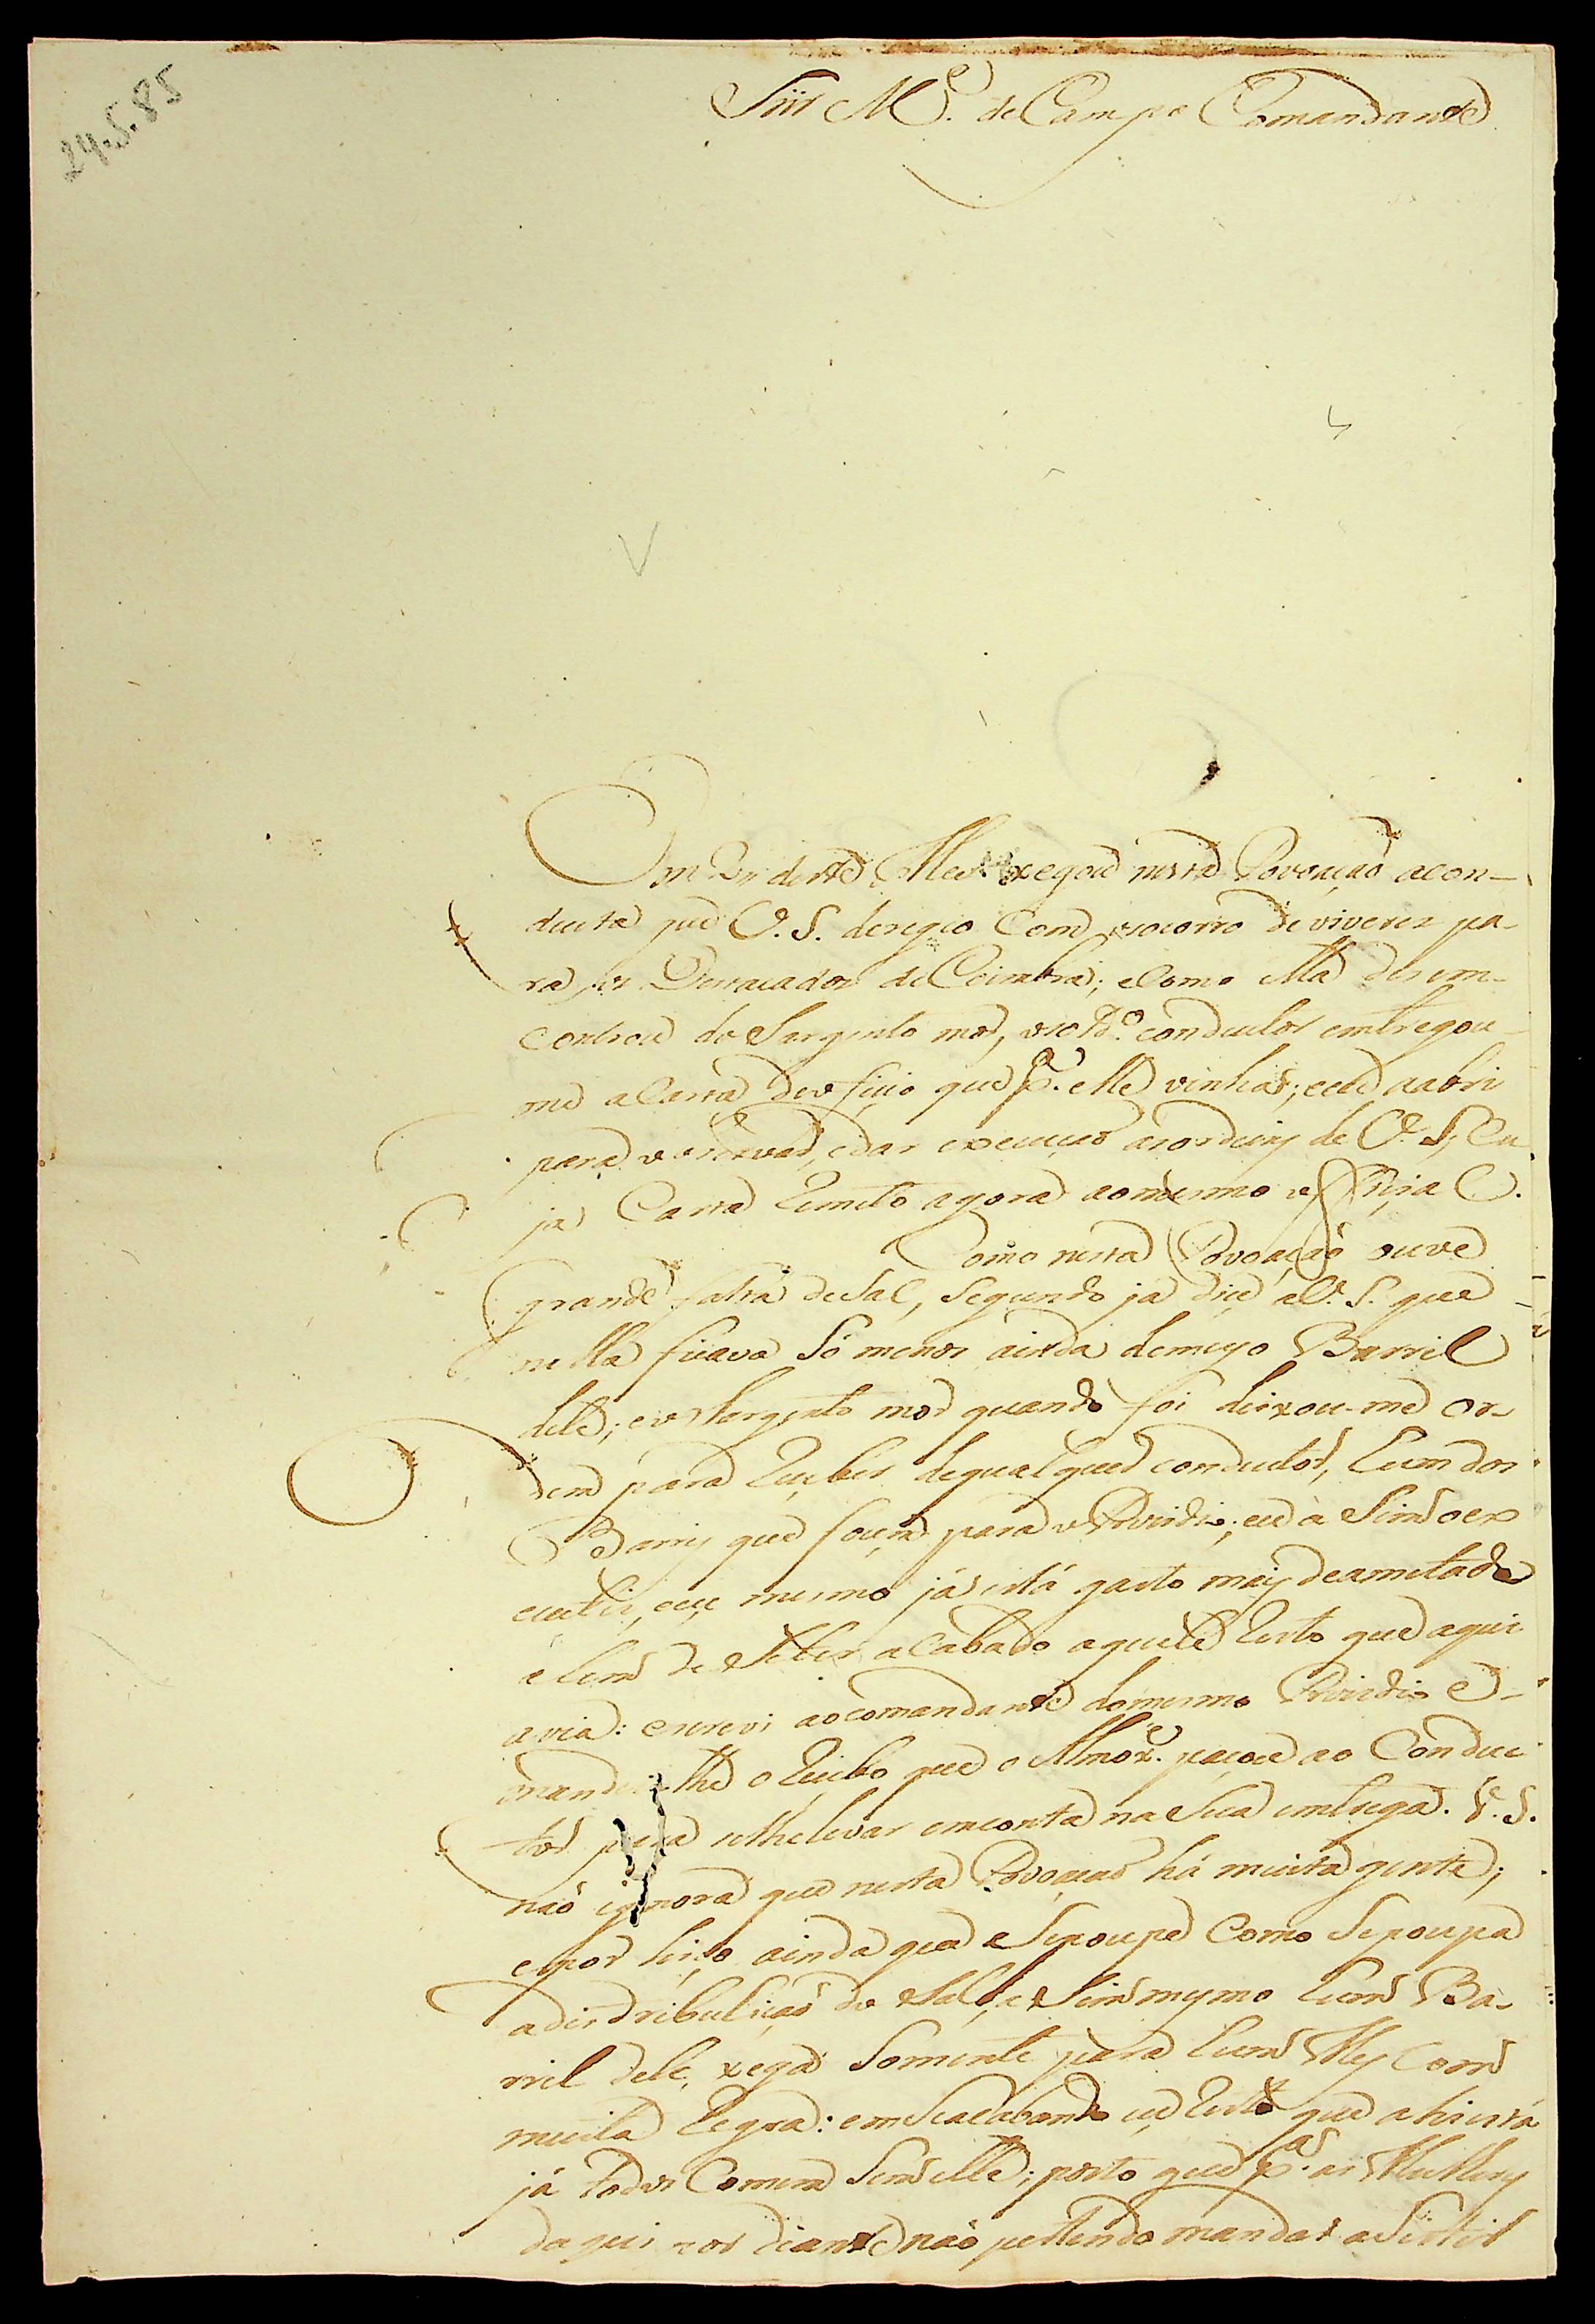 24.5.85
Snr M.e de Campo Comandante
deste Mez xegou nesta Povoação a con-
ducta que V. S. deregio Com o socorro de viveres pa-
ra os Destacados de Coimbra; e Como ella desem-
controu do Sargento mor, o Conductor entregou-
me a Carta de oficio que p.a elle vinha; e eu a abri
para observar, e dar execução as ordens de V. S, Cu-
ja Carta Remeto agora ao mesmo
Como nesta Povoação ouve
grande falta de Sal, Segundo já dice a V. S. que
nella ficava Só menos ainda de meyo Barril
dele; e o Sargento mor quando foi deixou-me or-
dem para Reçeber de qualquer conductor, hum dos
Barris que foçem para o Prezidio; eu a Sim o ex
ecutei, e esse mesmo já está gasto mais de ametade
alem de Se ter acabado aquele Resto que aqui
avia: escrevi ao comandante do mesmo Prezidio e
mandei-lhe o Reçibo que o Almox.e paçou ao Conduc
tor para se lhe levar em conta na Sua entrega. V. S.
não ignora que nesta Povoação há muita gente;
e por hiço ainda que Se poupe Como Se poupa
a distribuição do Sal, a Sim mesmo hum Ba-
rril dele, xega Somente para hum Mes Com
muita Regra: em Se acabando esse Resto que ahi está
já todos Comem Sem elle; posto que p.a as Mulheres
daqui por diante não pertendo mandar a Sistir